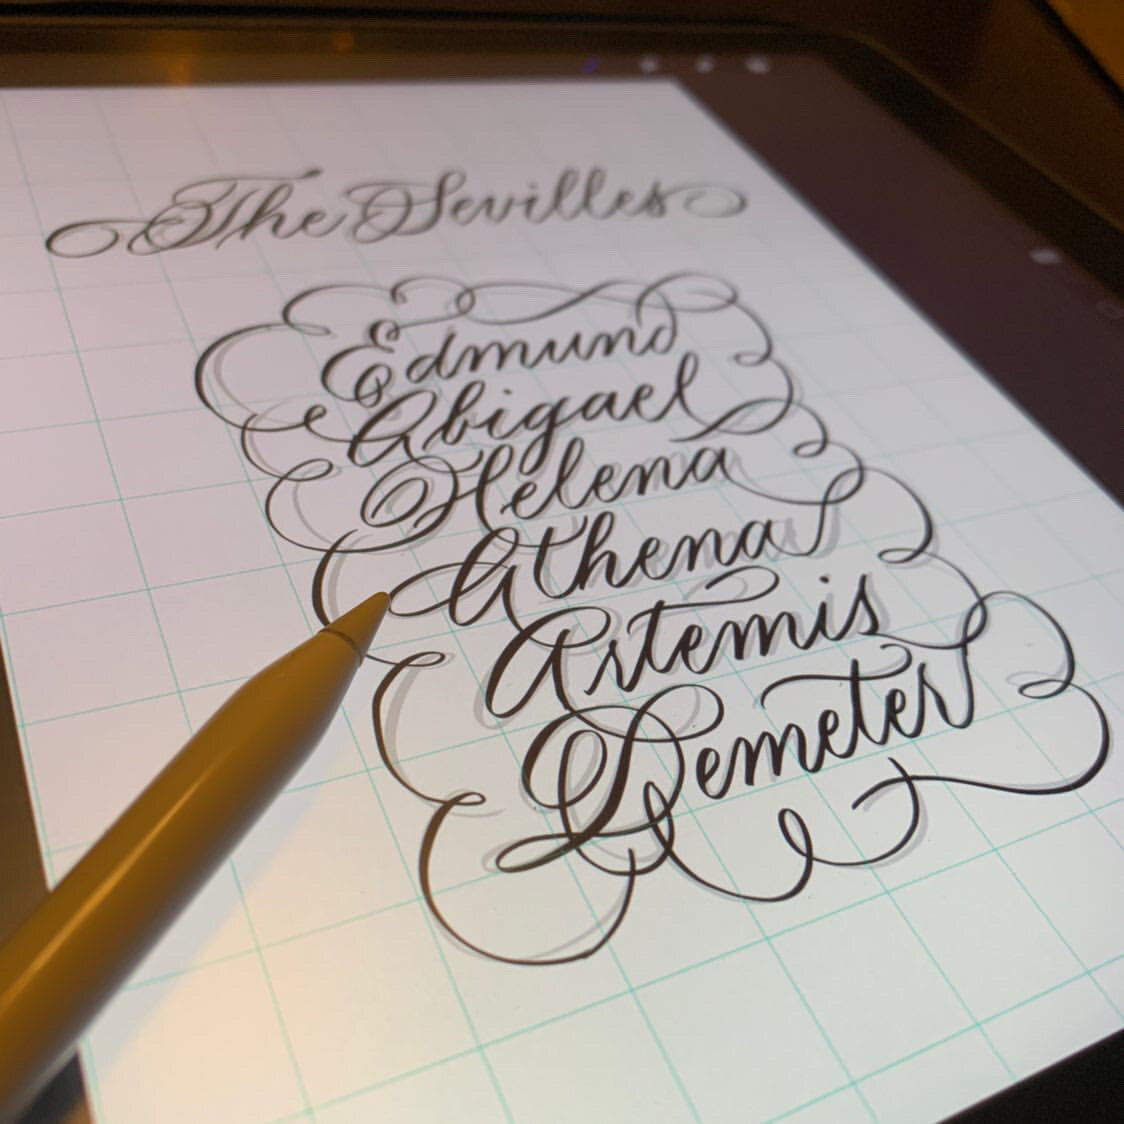 The Sevilles
Edmund
Abigael
Helena
Athena
Artemis
Demeter